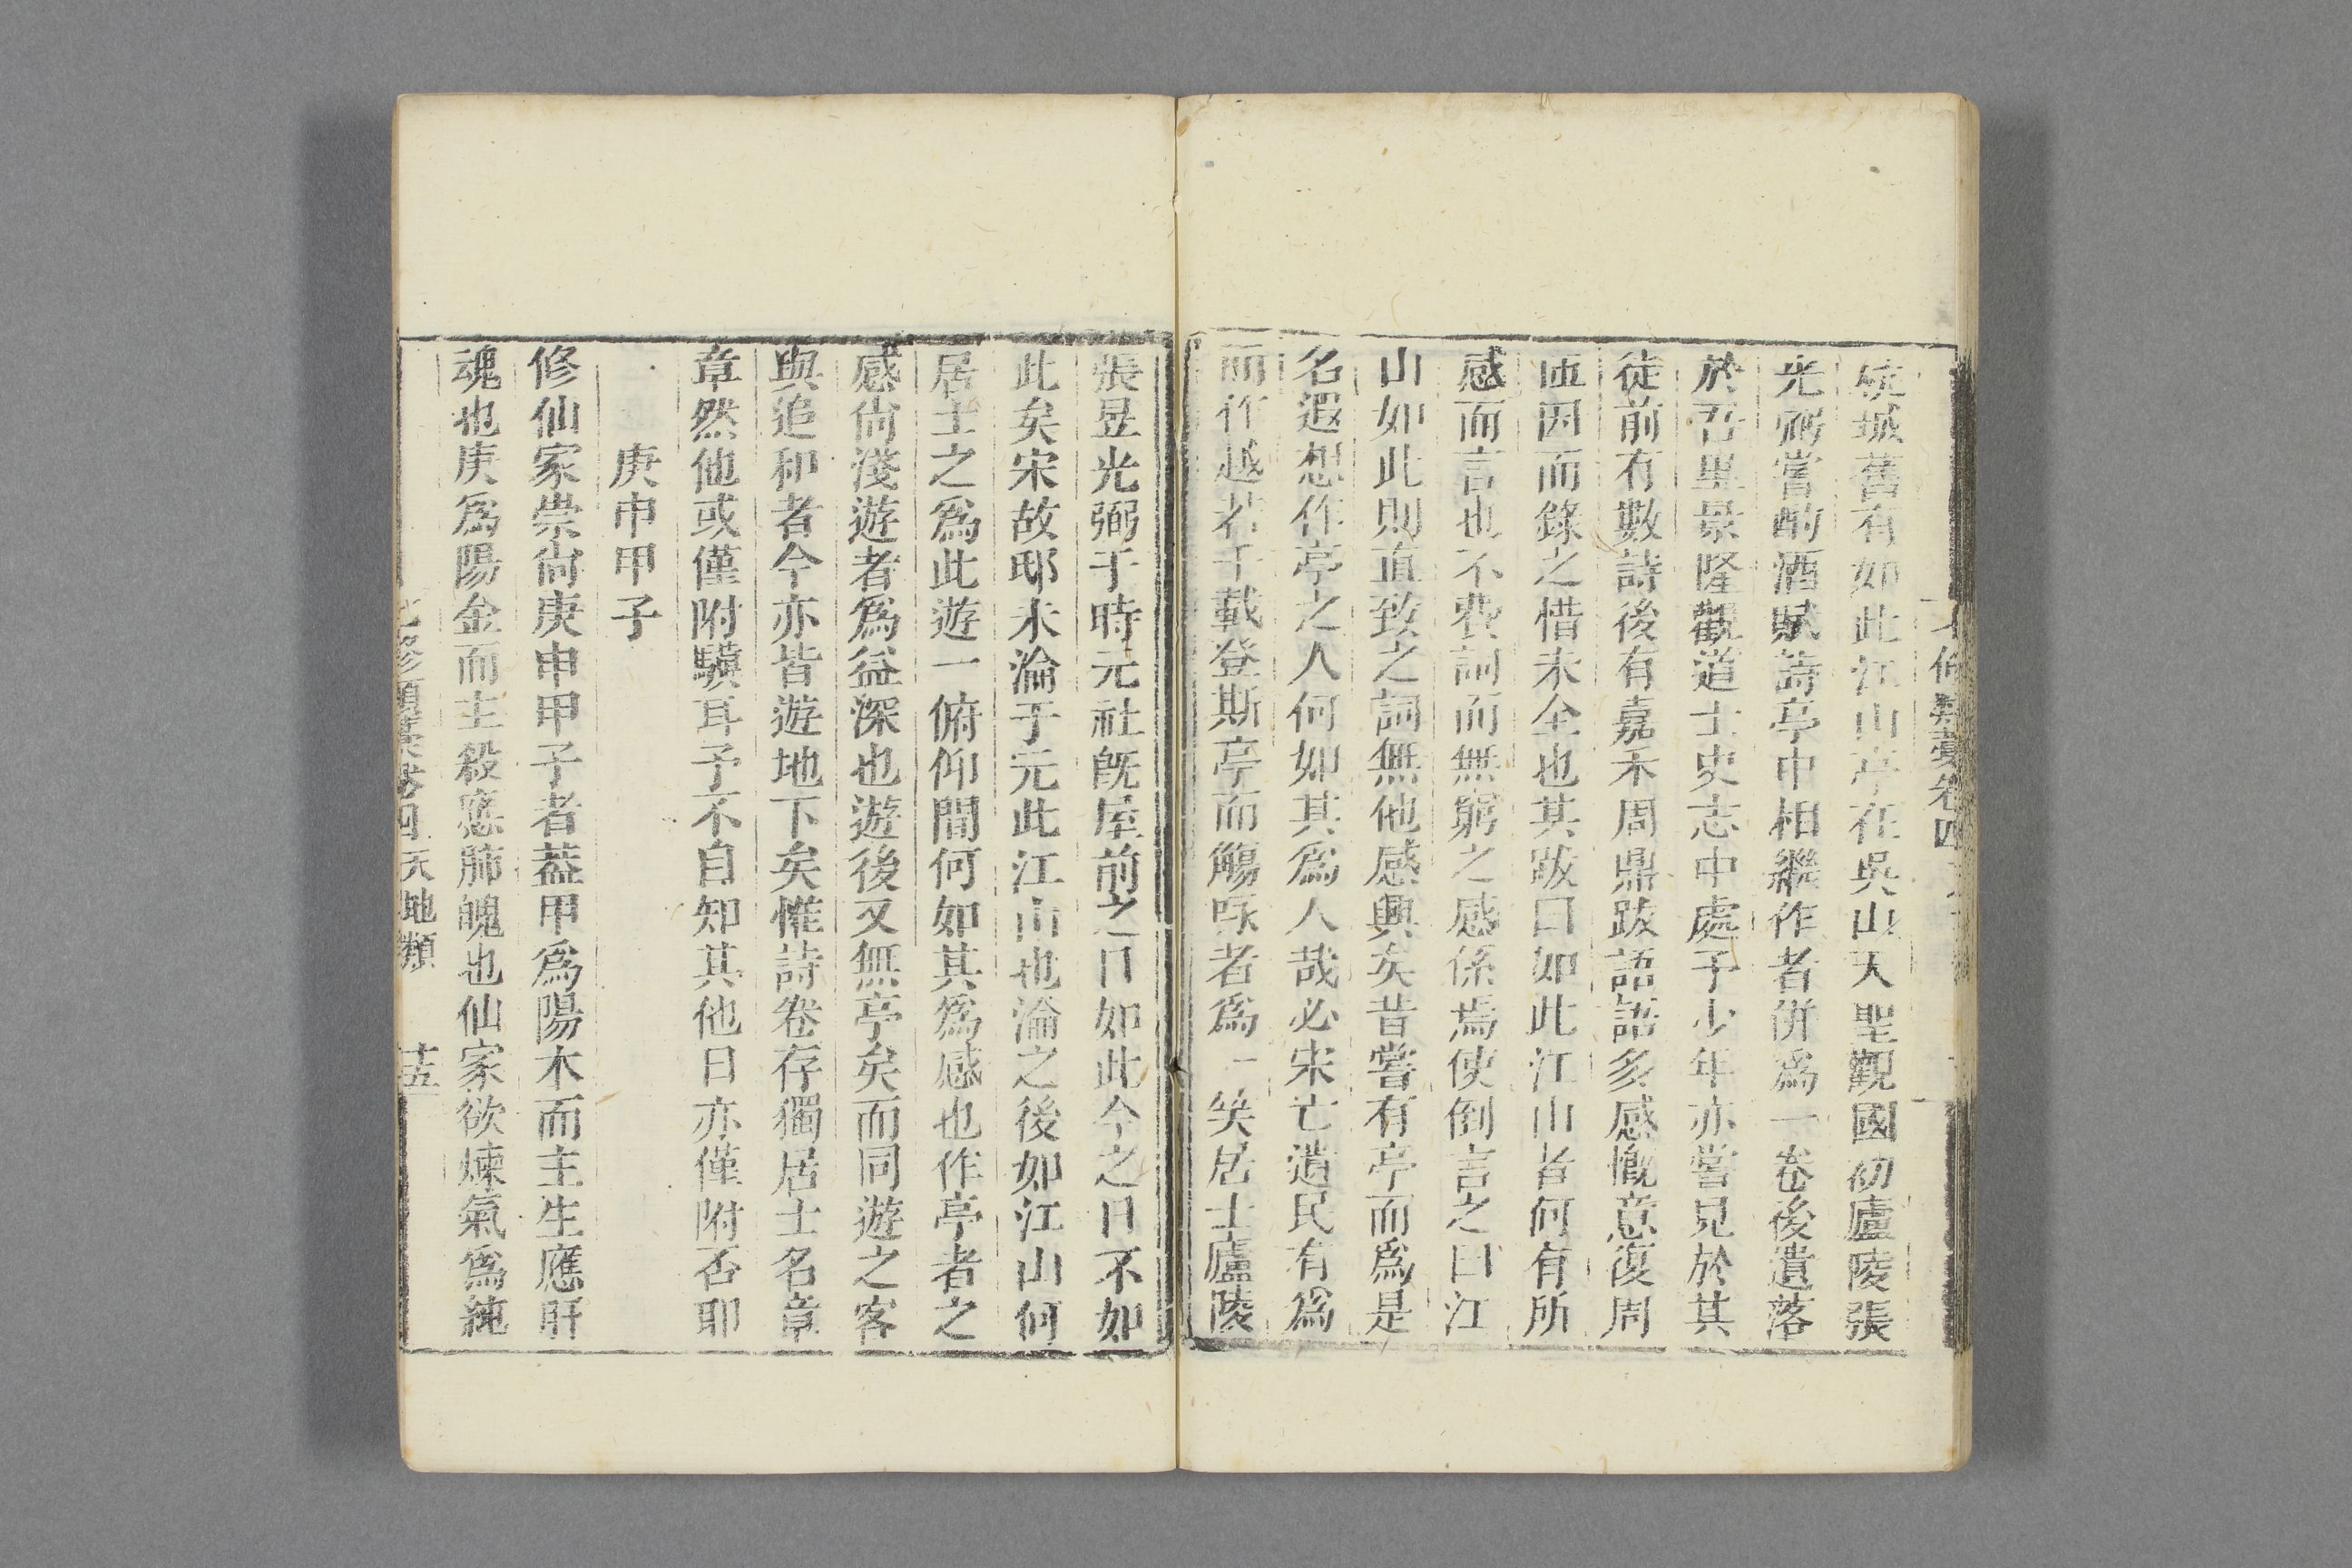 七修類藁卷四
杭城舊有如此江山亭在吳山天聖觀國初廬陵張
光弼嘗酌酒賦詩亭中相繼作者併爲一卷後遺落
於吾里景隆觀道士史志中處予少年亦嘗見於其
徒前有數詩後有嘉禾周鼎跋語語多感慨意復周
匝因而錄之惜未全也其跋曰如此江山者何有所
感而言也不費詞而無窮之感係焉使倒言之曰江
山如此則直致之詞無他感興矣昔嘗有亭而爲是
名遐想作亭之人何如其爲人哉必宋亡遺民有爲
而作越若千載登斯亭而觴咏者爲一笑居士廬陵
張昱光弼于時元社旣屋前之日如此今之日不如
此矣宋故邸未淪于元此江山也淪之後如江山何
居士之爲此遊一俯仰間何如其爲感也作亭者之
感尙淺遊者爲益深也遊後又無亭矣而同遊之客
與追和者今亦皆遊地下矣惟詩卷存獨居士名章
章然他或僅附驥耳予不自知其他日亦僅附否耶
庚申甲子
修仙家崇尙庚申甲子者葢甲爲陽木而主生應肝
魂也庚爲陽金而主殺應肺魄也仙家欲煉氣爲純
七修類藁卷四 天地類 十五